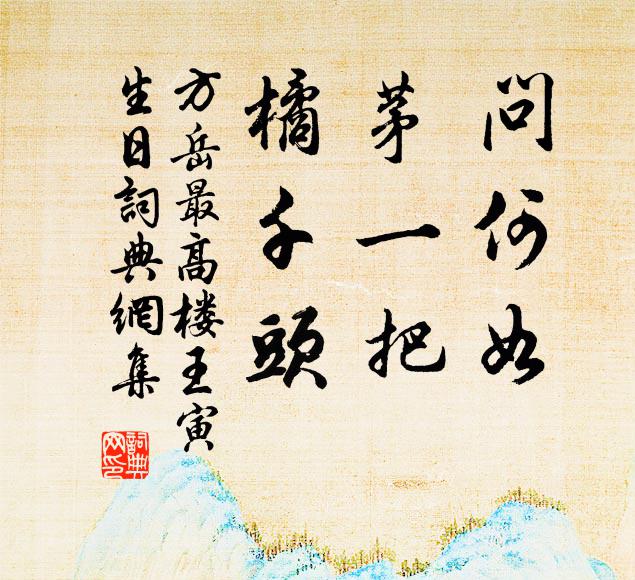 問何如
茅一把
橘千頭
方岳最高楼王寅
生日詞典網集
詞典
网印